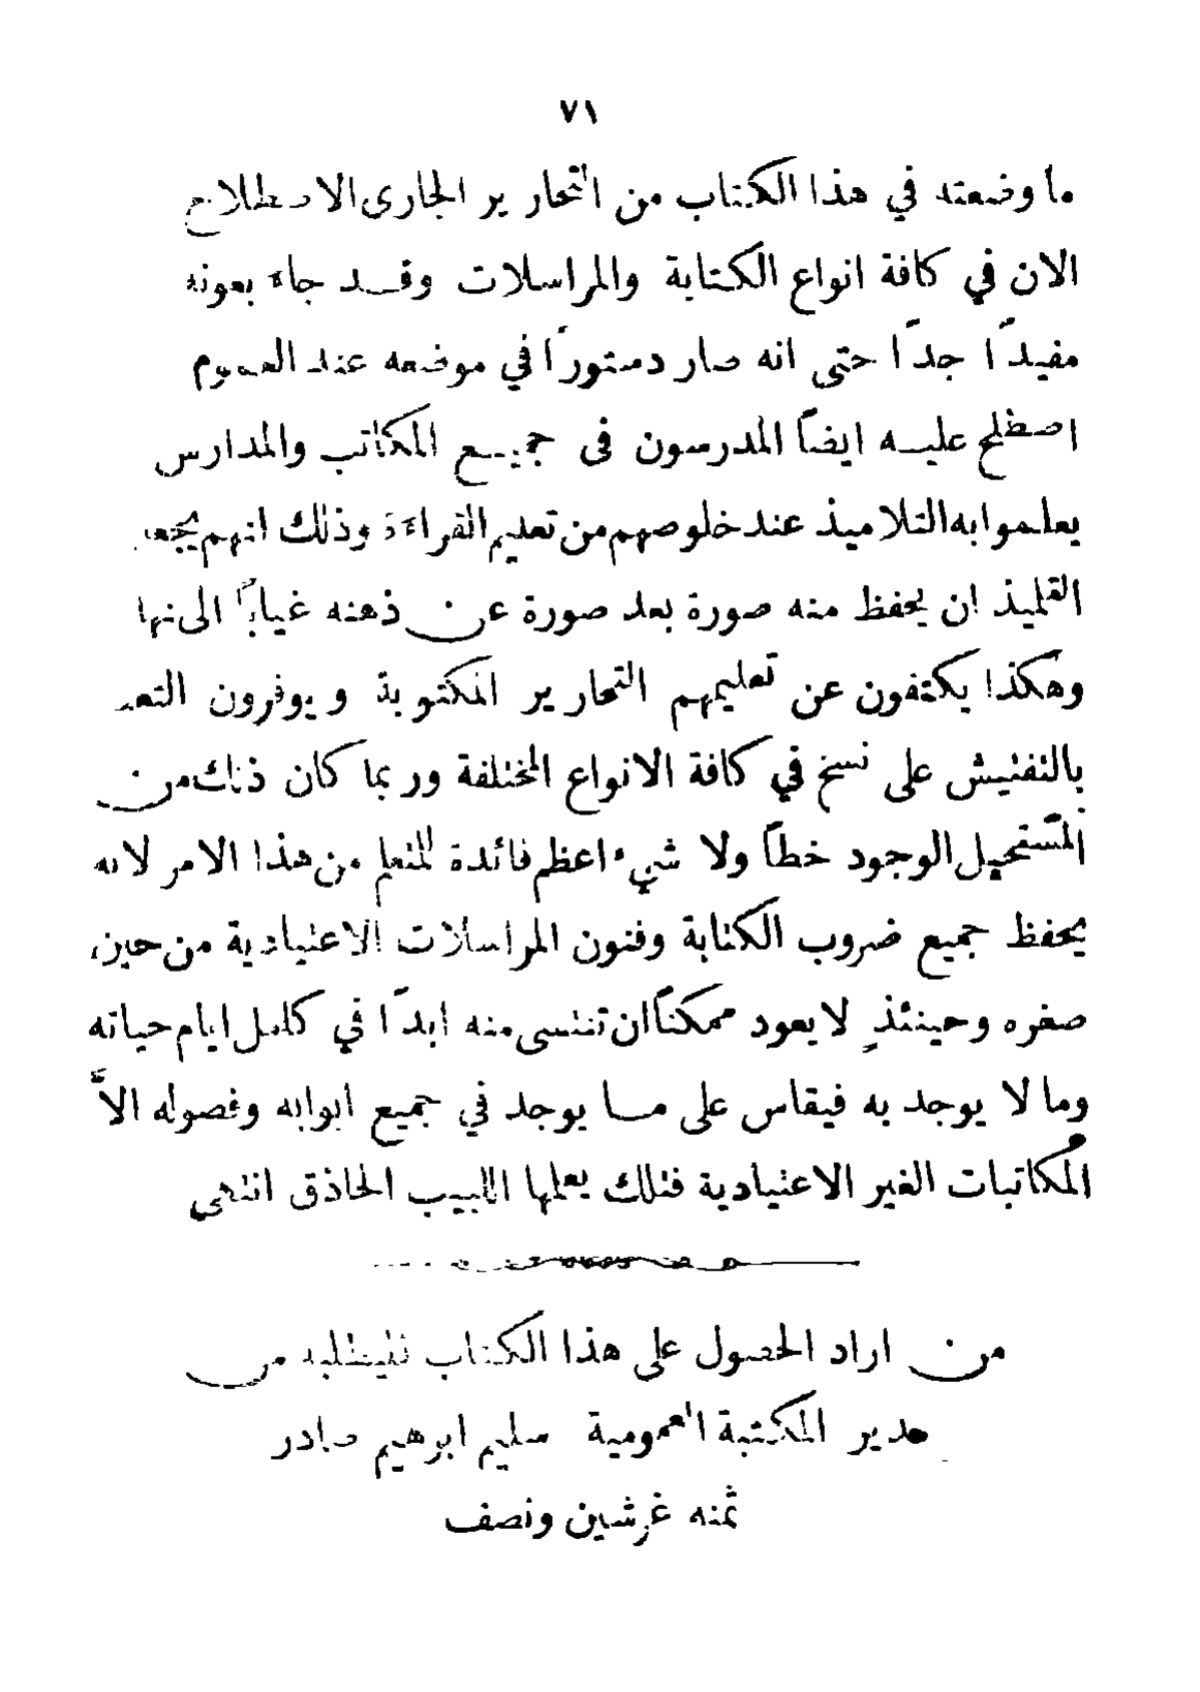 ٧١
ما وضعته في هذا الكتاب من التحارير الجارى الاصطلاح
الان في كافة انواع الكتابة والمراسلات وقد جاء بعونه
مفيدًا جدًا حتى انه صار دستورًا في موضعه عند العموم
اصطلح عليه ايضاً المدرسون فى جميع المكاتب والمدارس
يعلموا به التلاميذ عند خلوصهم من تعليم القراءة وذلك انهم
التلميذ ان يحفظ منه صورة بعد صورة عن ذهنه غياباً الى
وهكذا يكتفون عن تعليمهم التحارير المكتوبة ويوفرون
بالتفتيش على نسخ في كافة الانواع المختلفة وربما كان ذلك من
المستحيل الوجود خطاً ولا شيء اعظم فائدة للمتعلم من هذا الامر لانه
يحفظ جميع ضروب الكتابة وفنون المراسلات الاعتيادية من حين
صغره وحينئذٍ لا يعود ممكناً ان تنتسى منه ابدًا في كامل ايام حياته
وما لا يوجد به فيقاس على ما يوجد في جميع ابوابه وفصوله الاَّ
المكاتبات الغير الاعتيادية فتلك يعلمها اللبيب الحاذق انتهى
من اراد الحصول على هذا الكتاب فليطلبه من
مدير المكتبة العمومية سليم ابرهيم صادر
ثمنه غرشين ونصف